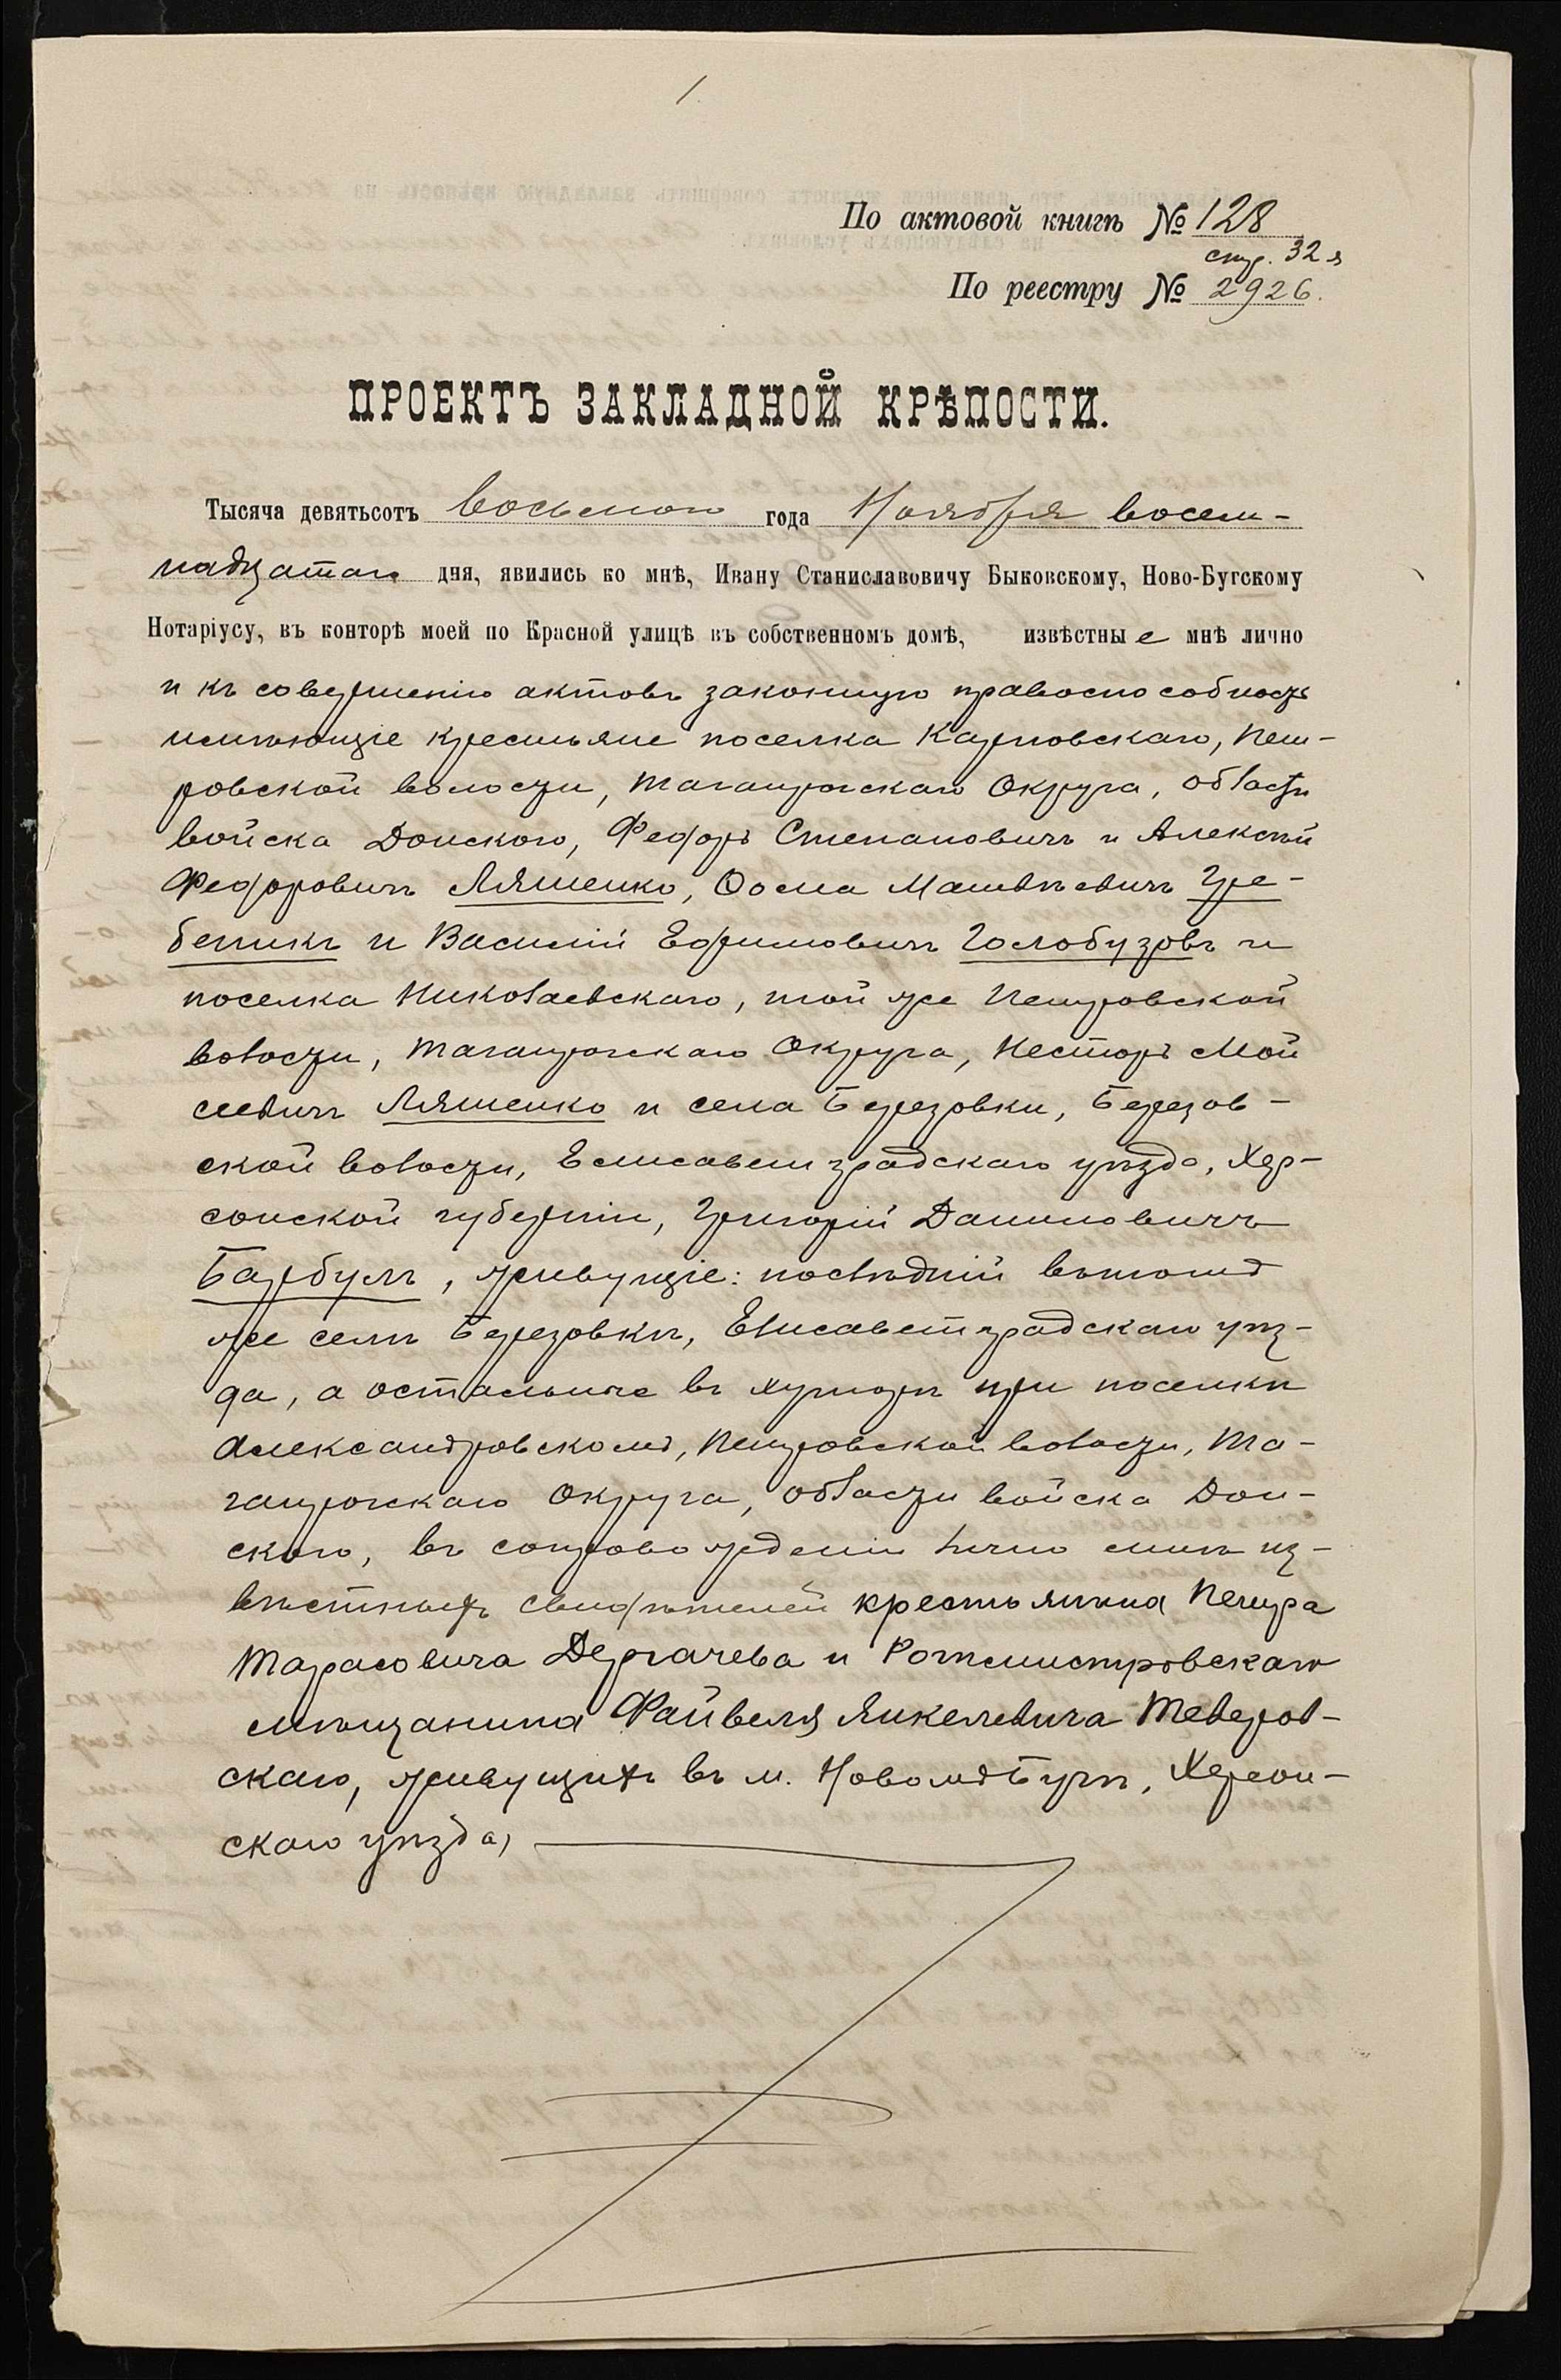 1
По актовой книгѣ № 128
стр. 32 я
По реестру № 2926.
ПРОЕКТЪ ЗАКЛАДНОЙ КРѢПОСТИ.
Тысяча девятьсотъ восьмого года Ноября восем-
надцатаго дня, явились ко мнѣ, Ивану Станиславовичу Быковскому, Ново-Бугскому
Нотаріусу, въ конторѣ моей по Красной улицѣ въ собственномъ домѣ, извѣстные мнѣ лично
и къ совершенію актовъ законную правоспособность
имѣющіе крестьяне поселка Карповскаго, Пет-
ровской волости, Таганрогскаго Округа, области
войска Донского, Федоръ Степановичъ и Алексѣй
Федоровичъ Ляшенко, Ѳома Матвѣевичъ Гре-
беникъ и Василій Ефимовичъ Голобузовъ и
поселка Николаевскаго, той же Петровской
волости, Таганрогскаго Округа, Несторъ Мой
сеевичъ Ляшенко и села Березовки, Березов-
ской волости, Елисаветградскаго уѣзда, Хер-
сонской губерніи, Григорій Даниловичъ
Барбулъ, живущіе: послѣдній въ томъ
же селѣ Березовкѣ, Елисаветградскаго уѣз-
да, а остальные въ хуторѣ при поселкѣ
Александровскомъ, Петровской волости, Та-
ганрогскаго Округа, области войска Дон-
ского, въ сопровожденіи лично мнѣ из-
вѣстныхъ свидѣтелей крестьянина Петра
Тарасовича Дергачева и Ротмистровскаго
мѣщанина Файвеля Янкелевича Теверов-
скаго, живущихъ въ м. Новомъ Бугѣ, Херсон-
скаго уѣзда,